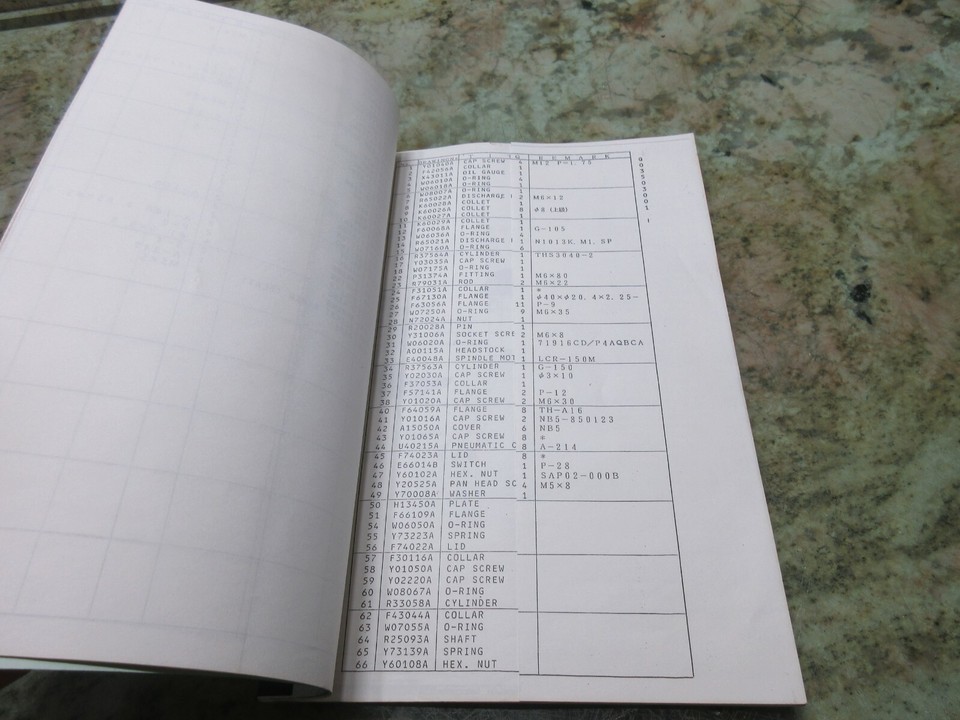 REMARK
Y01040A CAP SCREW 4 M12 P-1.75
F42056A COLLAR 1
X43011A OIL GAUGE 1
W06018A O-RING 4
W06018A O-RING 1
W08007A O-RING 1
R65022A DISCHARGE 2 M6×12
K60028A COLLET 1
K60026A COLLET 8 φ8
K60027A COLLET 1
K60029A COLLET 1
F60068A FLANGE 1 G-105
W06036A O-RING 4
R65021A DISCHARGE 1 N1013K. M1. SP
W07160A O-RING 6
R37564A CYLINDER 1 THS3040-2
Y03035A CAP SCREW 1
W07175A O-RING 1
P31374A FITTING 1 M6×80
R79031A ROD 2 M6×22
F31051A COLLAR 1 *
F67130A FLANGE 1 φ40×φ20. 4×2. 25-
F63056A FLANGE 11 P-9
W07250A O-RING 9 M6×35
28 N72024A NUT 1
29 R20028A PIN 1
30 Y31006A SOCKET SCRE 2 M6×8
31 W06020A O-RING 1 71916CD/P4AQBCA
32 A00115A HEADSTOCK 1
33 E40048A SPINDLE MOT 1 LCR-150M
34 R37563A CYLINDER 1 G-150
35 Y02030A CAP SCREW 1 φ3×10
36 F37053A COLLAR 1
37 F57141A FLANGE 2 P-12
38 Y01020A CAP SCREW 2 M6×30
40 F64059A FLANGE 8 TH-A16
41 Y01016A CAP SCREW 2 NB5-850123
42 A15050A COVER 6 NB5
43 Y01065A CAP SCREW 8 *
44 U40215A PNEUMATIC C 8 A-214
45 F74023A LID 8 *
46 E66014B SWITCH 1 P-28
47 Y60102A HEX. NUT 1 SAP02-000B
48 Y20525A PAN HEAD SC 4 M5×8
49 Y70008A WASHER 1
50 H13450A PLATE
51 F66109A FLANGE
54 W06050A O-RING
55 Y73223A SPRING
56 F74022A LID
57 F30116A COLLAR
58 Y01050A CAP SCREW
59 Y02220A CAP SCREW
60 W08067A O-RING
61 R33058A CYLINDER
62 F43044A COLLAR
63 W07055A O-RING
64 R25093A SHAFT
65 Y73139A SPRING
66 Y60108A HEX. NUT